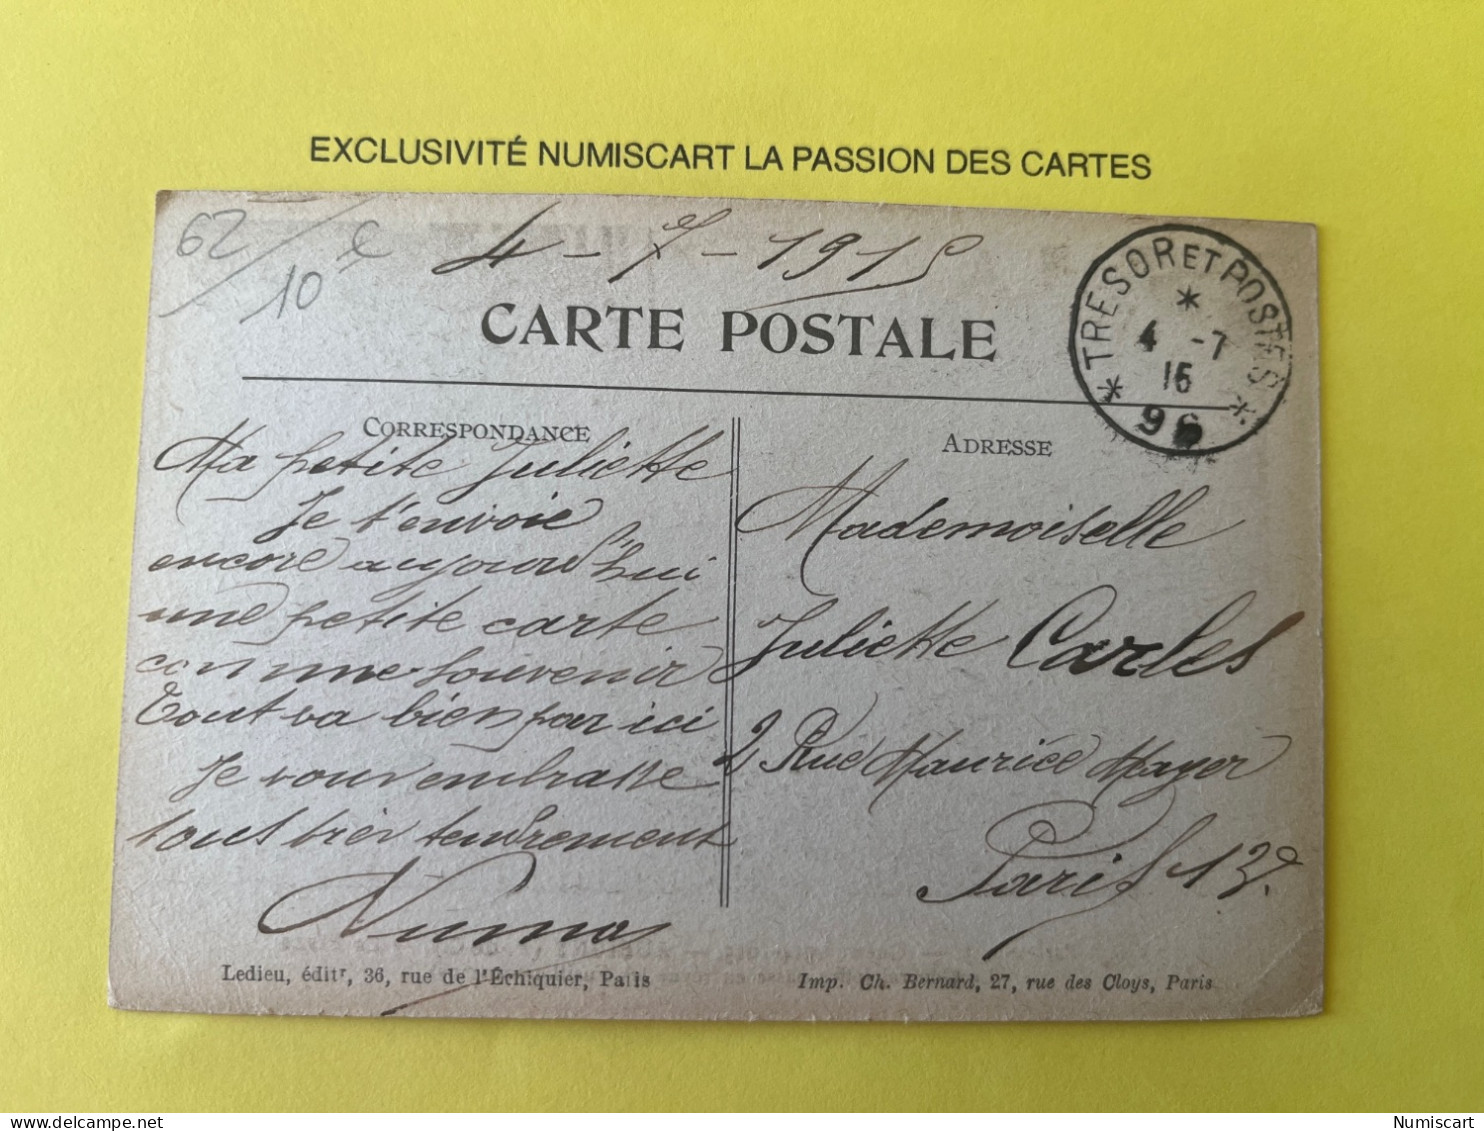 EXCLUSIVITÉ NUMISCART LA PASSION DES CARTES
62/10 e
4-7-1915
CARTE POSTALE
* TRESOR ET POSTES *
*
4 -7
15
96
CORRESPONDANCE
Ma petite Juliette
Je t'envoie
encore aujourd'hui
une petite carte
comme souvenir
Tout va bien par ici
Je vous embrasse
tous bien tendrement
Numa
ADRESSE
Mademoiselle
Juliette Carles
2 Rue Maurice Mayer
Paris 13e.
Ledieu, éditr, 36, rue de l'Échiquier, Paris
Imp. Ch. Bernard, 27, rue des Cloys, Paris
Numiscart